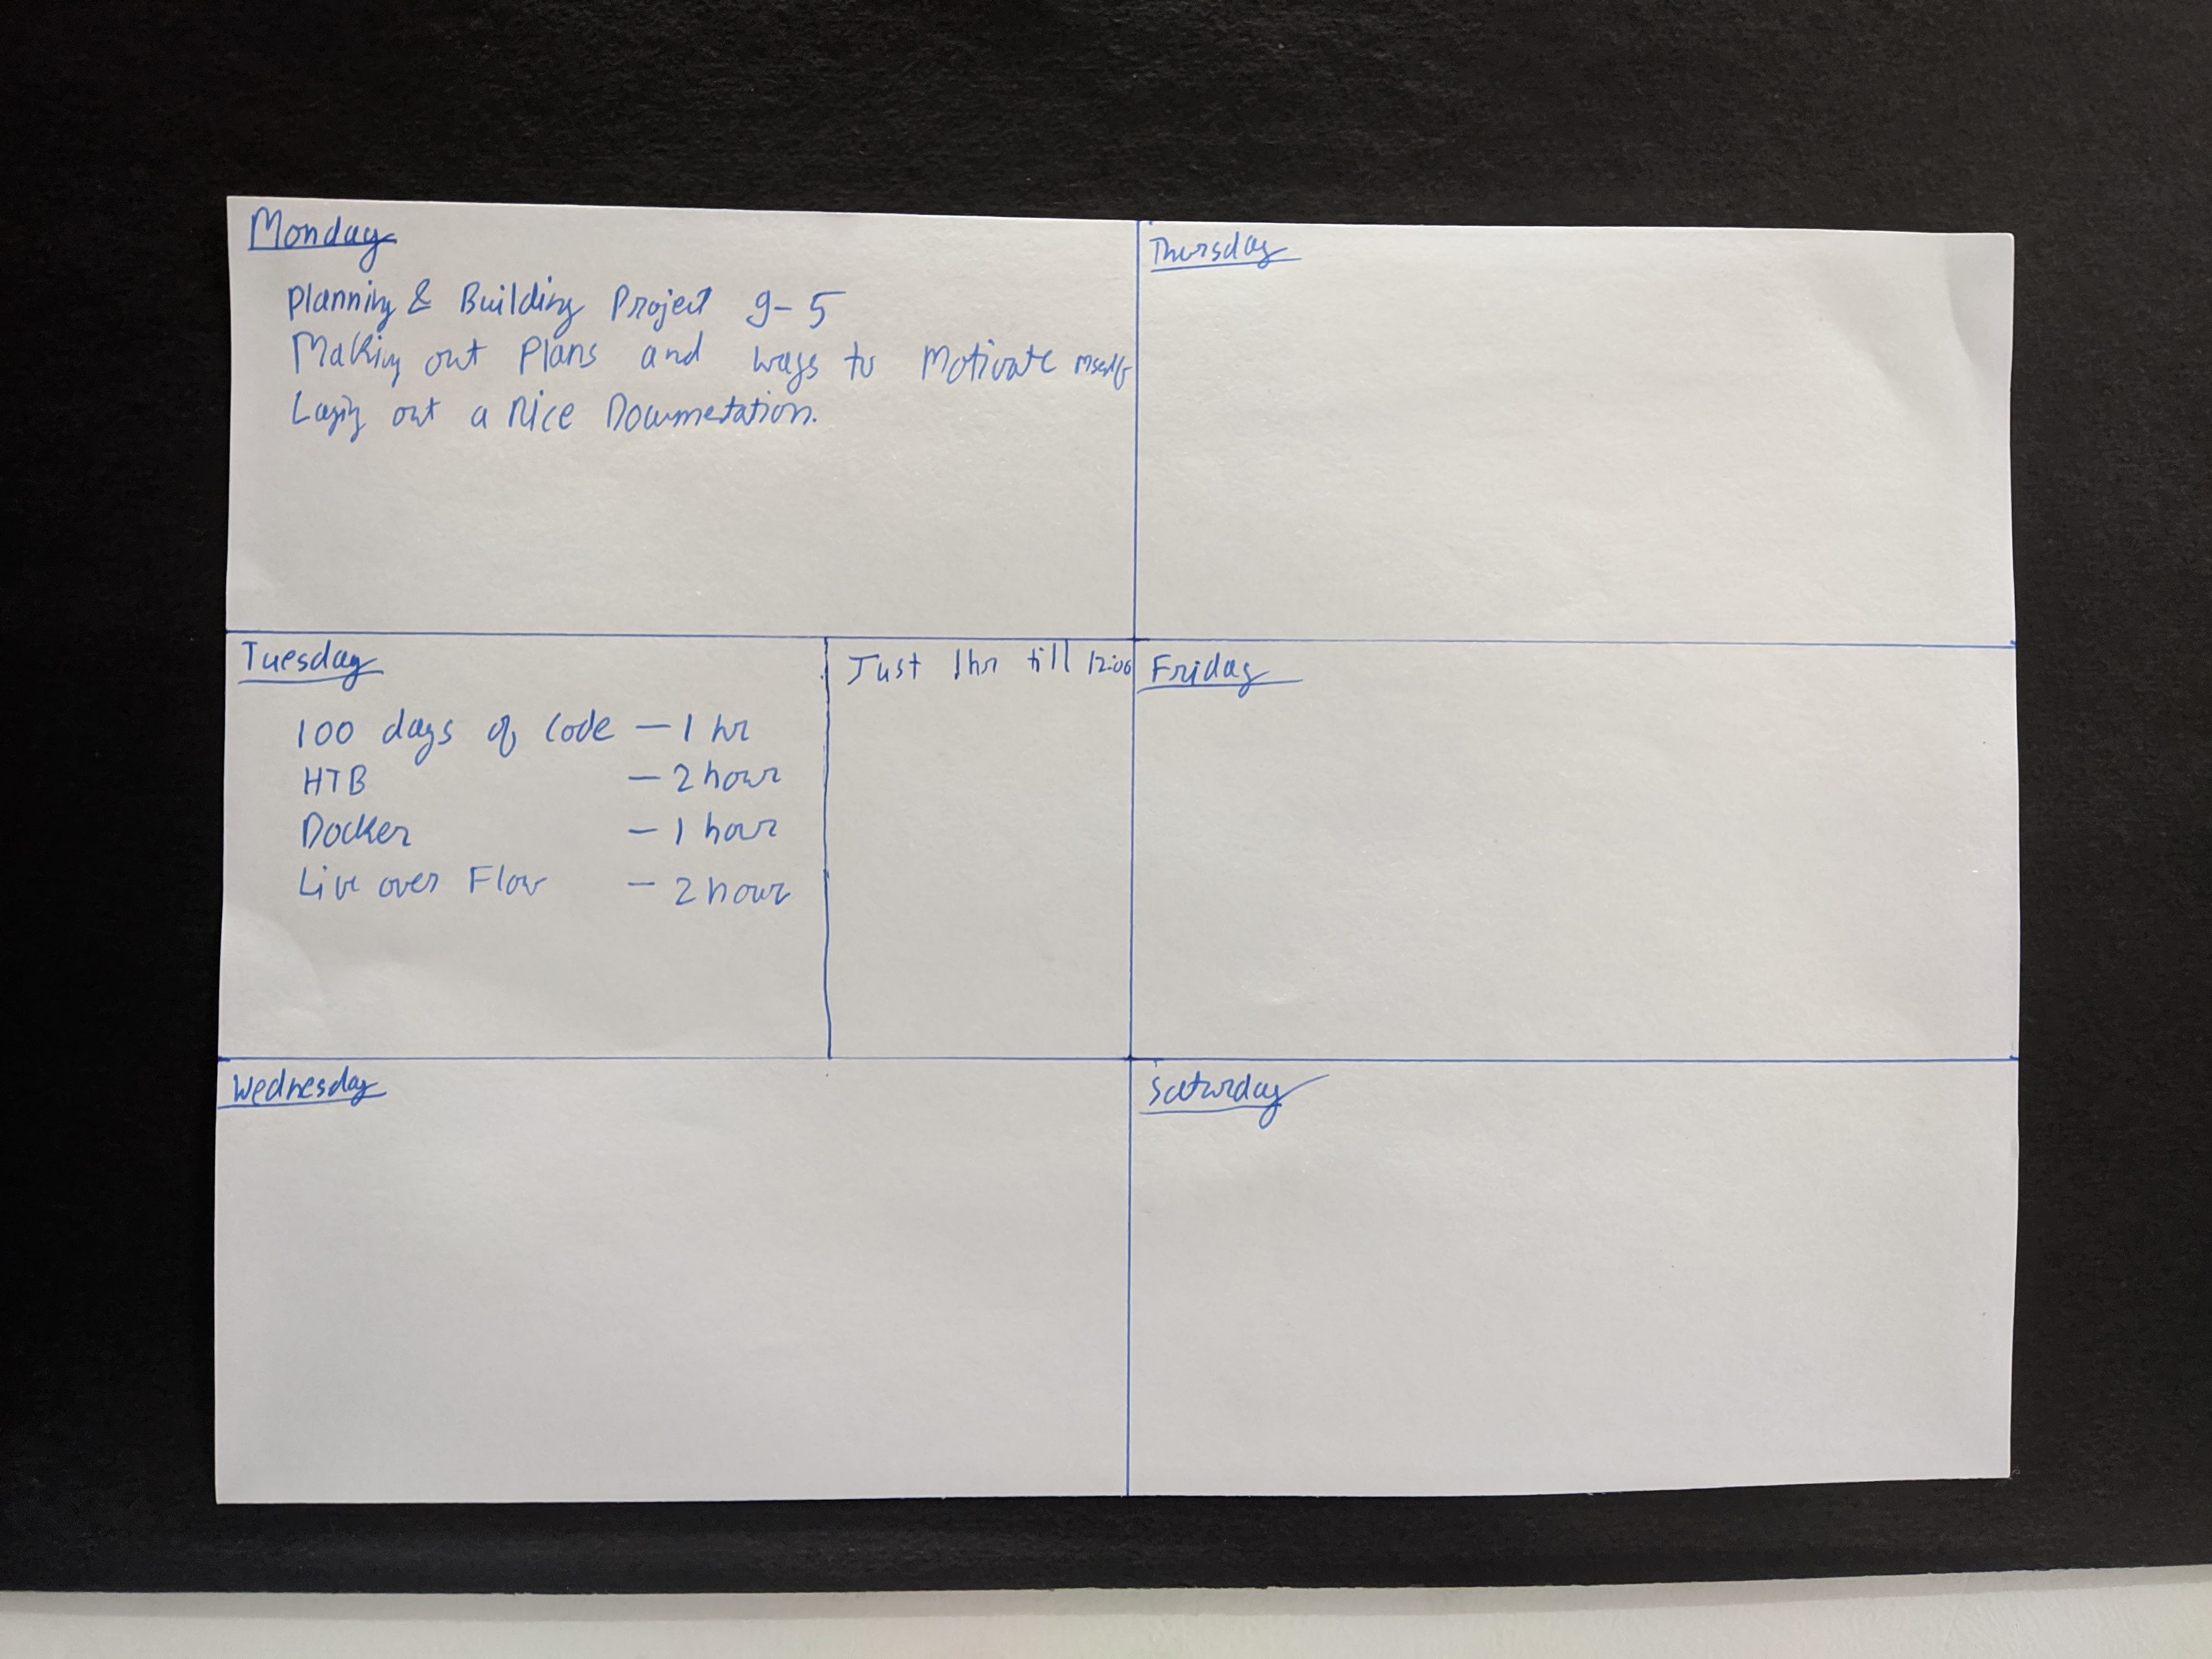 Monday
Planning & Building Project 9-5
Making out Plans and ways to Motivate mself
Laying out a Nice Documetation.
Tuesday
100 days of Code — 1 hr
HTB — 2 hour
Docker — 1 hour
Live over Flow — 2 hour
Just 1hr till 12:00
Wednesday
Thursday
Friday
Saturday